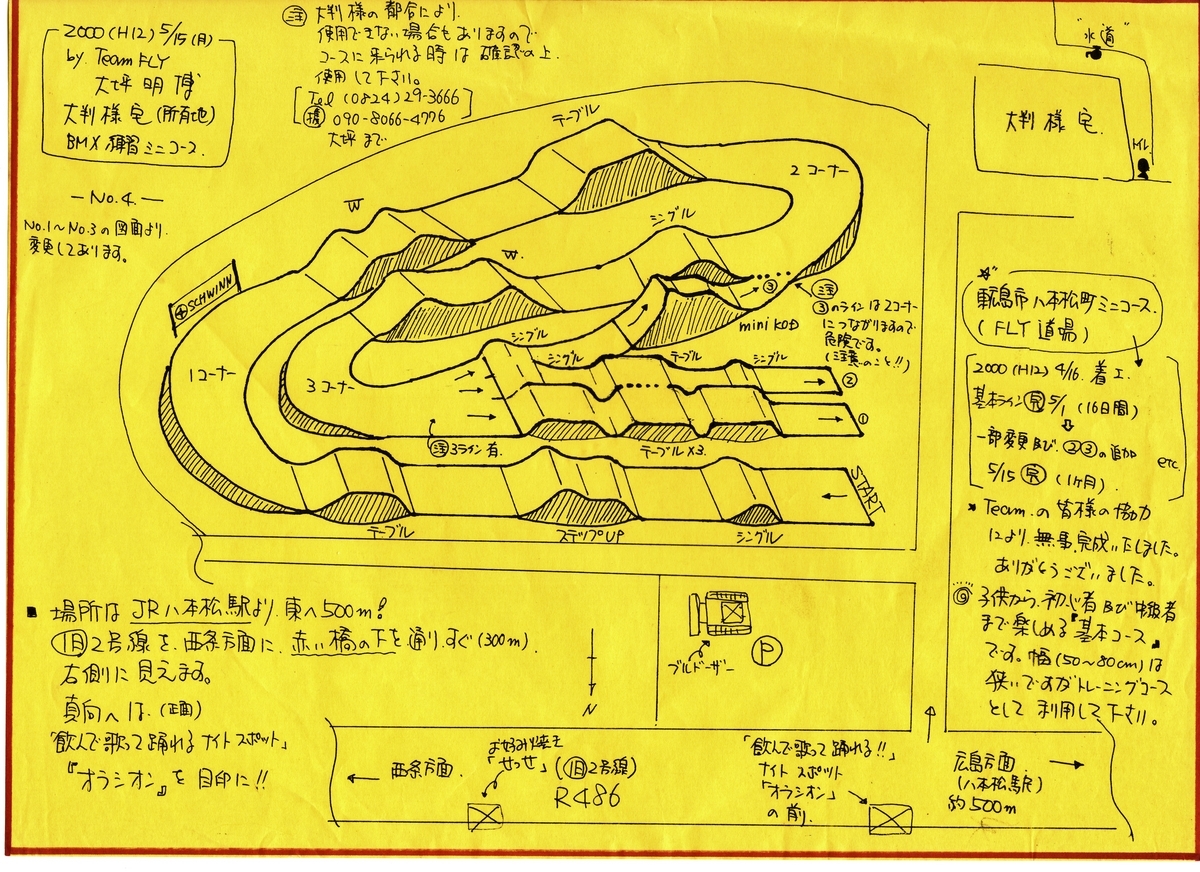 2000 (H12) 5/15 (月)
by. Team FLY
大坪 明 博
大判様宅 (所有地)
BMX 練習ミニコース.
— No.4. —
No.1〜No.3の図面より.
変更してあります。
㊟ 大判様の都合により.
使用できない場合もありますので
コースに来られる時は確認の上.
使用して下さい。
Tel (0824) 29-3666
携 090-8066-4776
大坪まで
"水道"
大判様宅.
トイレ.
テーブル
2コーナー
W
シングル
W.
SCHWINN
③
mini KOD
㊟
③のラインは2コーナー
につながりますので
危険です。
(注意のこと!!)
シングル
シングル
テーブル
シングル
②
1コーナー
3コーナー
①
㊟3ライン有.
テーブル×3.
START
テーブル
ステップUP
シングル
東広島市八本松町ミニコース.
(FLY道場)
2000 (H12) 4/16. 着工.
基本ライン 完 5/1 (16日間)
一部変更及び. ②③の追加
etc.
5/15 完 (1ヶ月).
* Team.の皆様の協力
により. 無事. 完成いたしました。
ありがとうございました。
◎ 子供から. 初心者及び中級者
まで楽しめる『基本コース』
です。幅(50〜80cm)は
狭いですがトレーニングコース
として利用して下さい。
■ 場所は JR八本松駅より. 東へ500m!
旧2号線を. 西条方面に. 赤い橋の下を通り. すぐ (300m).
右側に見えます。
真向へは. (正面)
「飲んで歌って踊れる ナイト スポット」
『オラシオン』を目印に!!
N
ブルドーザー
P
← 西条方面.
お好み焼き
「せっせ」
(旧2号線)
R486
「飲んで歌って踊れる!!」
ナイト スポット
「オラシオン」
の前.
広島方面 →
(八本松駅)
約500m